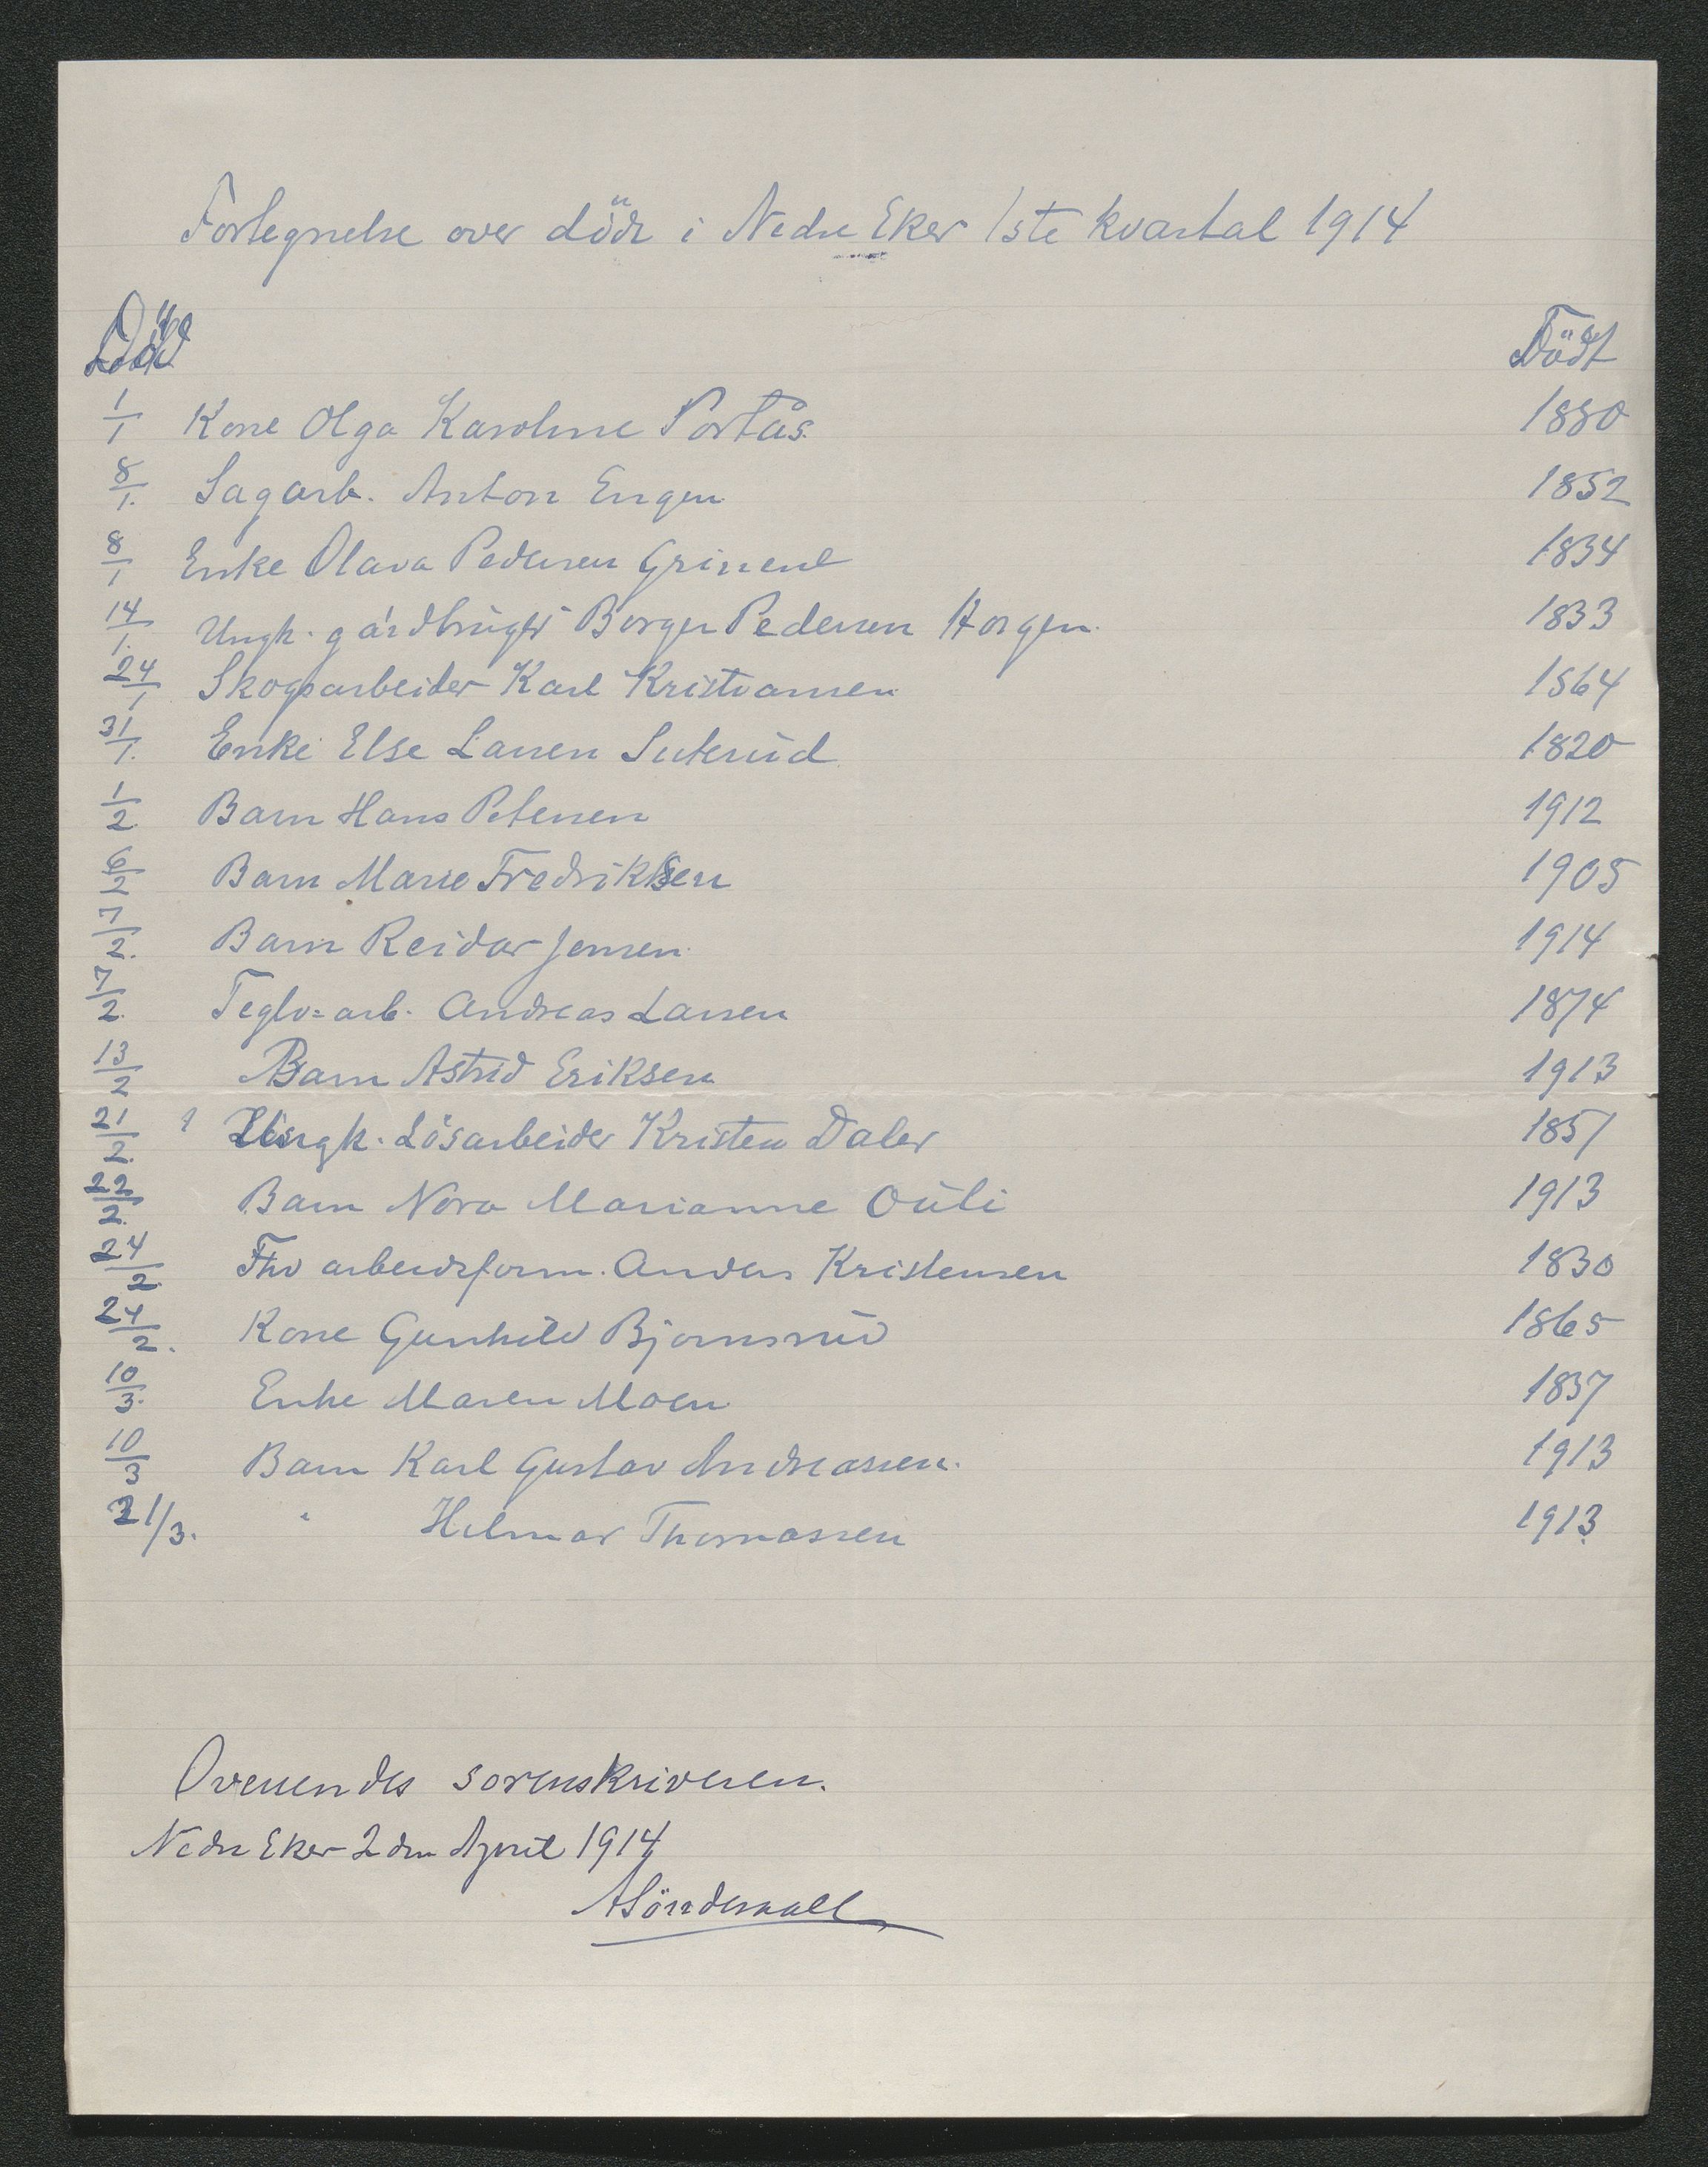 Fortegnelse over döde i Nedre Eker 1ste kvartal 1914
Död Födt
1/1 Kone Olga Karoline Portås. 1880
8/1. Sagarb. Anton Engen 1852
8/1 Enke Olava Pedersen Grinene 1834
14/1. Ungk. gårdbruger Borger Pedersen Horgen. 1833
24/1 Skogsarbeider Karl Kristiansen 1864
31/1. Enke Else Larsen Suterud 1820
1/2 Barn Hans Petersen 1912
6/2 Barn Marie Fredriksen 1905
7/2. Barn Reidar Jensen 1914
7/2. Teglv=arb. Andreas Larsen 1874
13/2 Barn Astrid Eriksen 1913
21/2. Ungk. Lösarbeider Kristen Daler 1851
22/2. Barn Nora Marianne Ouli 1913
24/2 Fhv arbeidsform. Anders Kristensen 1830
24/2. Kone Gunhild Bjornsrud 1865
10/3. Enke Maren Moen 1837
10/3 Barn Karl Gustav Andreassen. 1913
21/3. " Hilmar Thomassen 1913.
Oversendes sorenskriveren.
Nedre Eker 2den April 1914